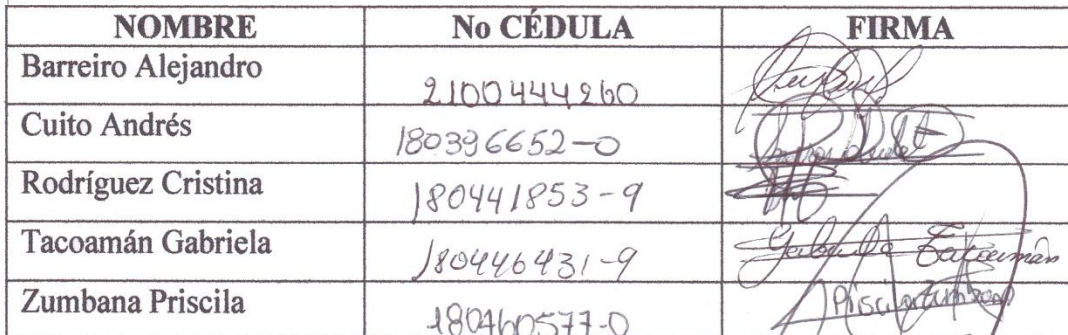 NOMBRE No CÉDULA FIRMA
Barreiro Alejandro 2100444260
Cuito Andrés 180396652-0
Rodríguez Cristina 180441853-9
Tacoamán Gabriela 180446431-9 Gabriela Tacoamán
Zumbana Priscila 180460577-0